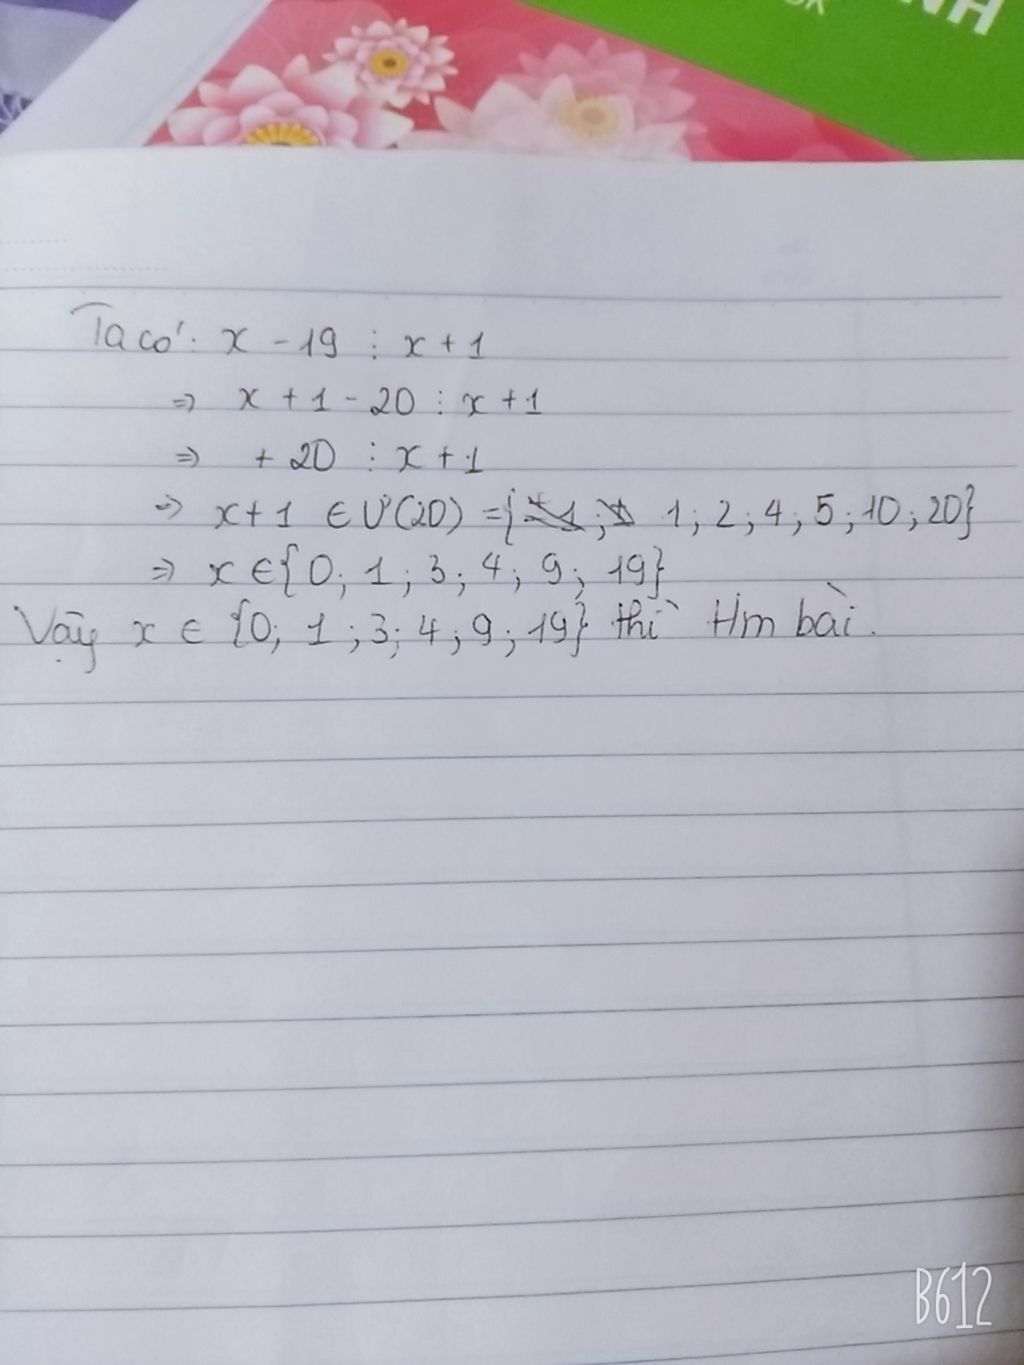 NH
Ta có: x - 19 ⋮ x + 1
=> x + 1 - 20 ⋮ x + 1
=> + 20 ⋮ x + 1
=> x + 1 ∈ Ư(20) = { 1; 2; 4; 5; 10; 20}
=> x ∈ {0; 1; 3; 4; 9; 19}
Vậy x ∈ {0; 1; 3; 4; 9; 19} thì tm bài.
B612